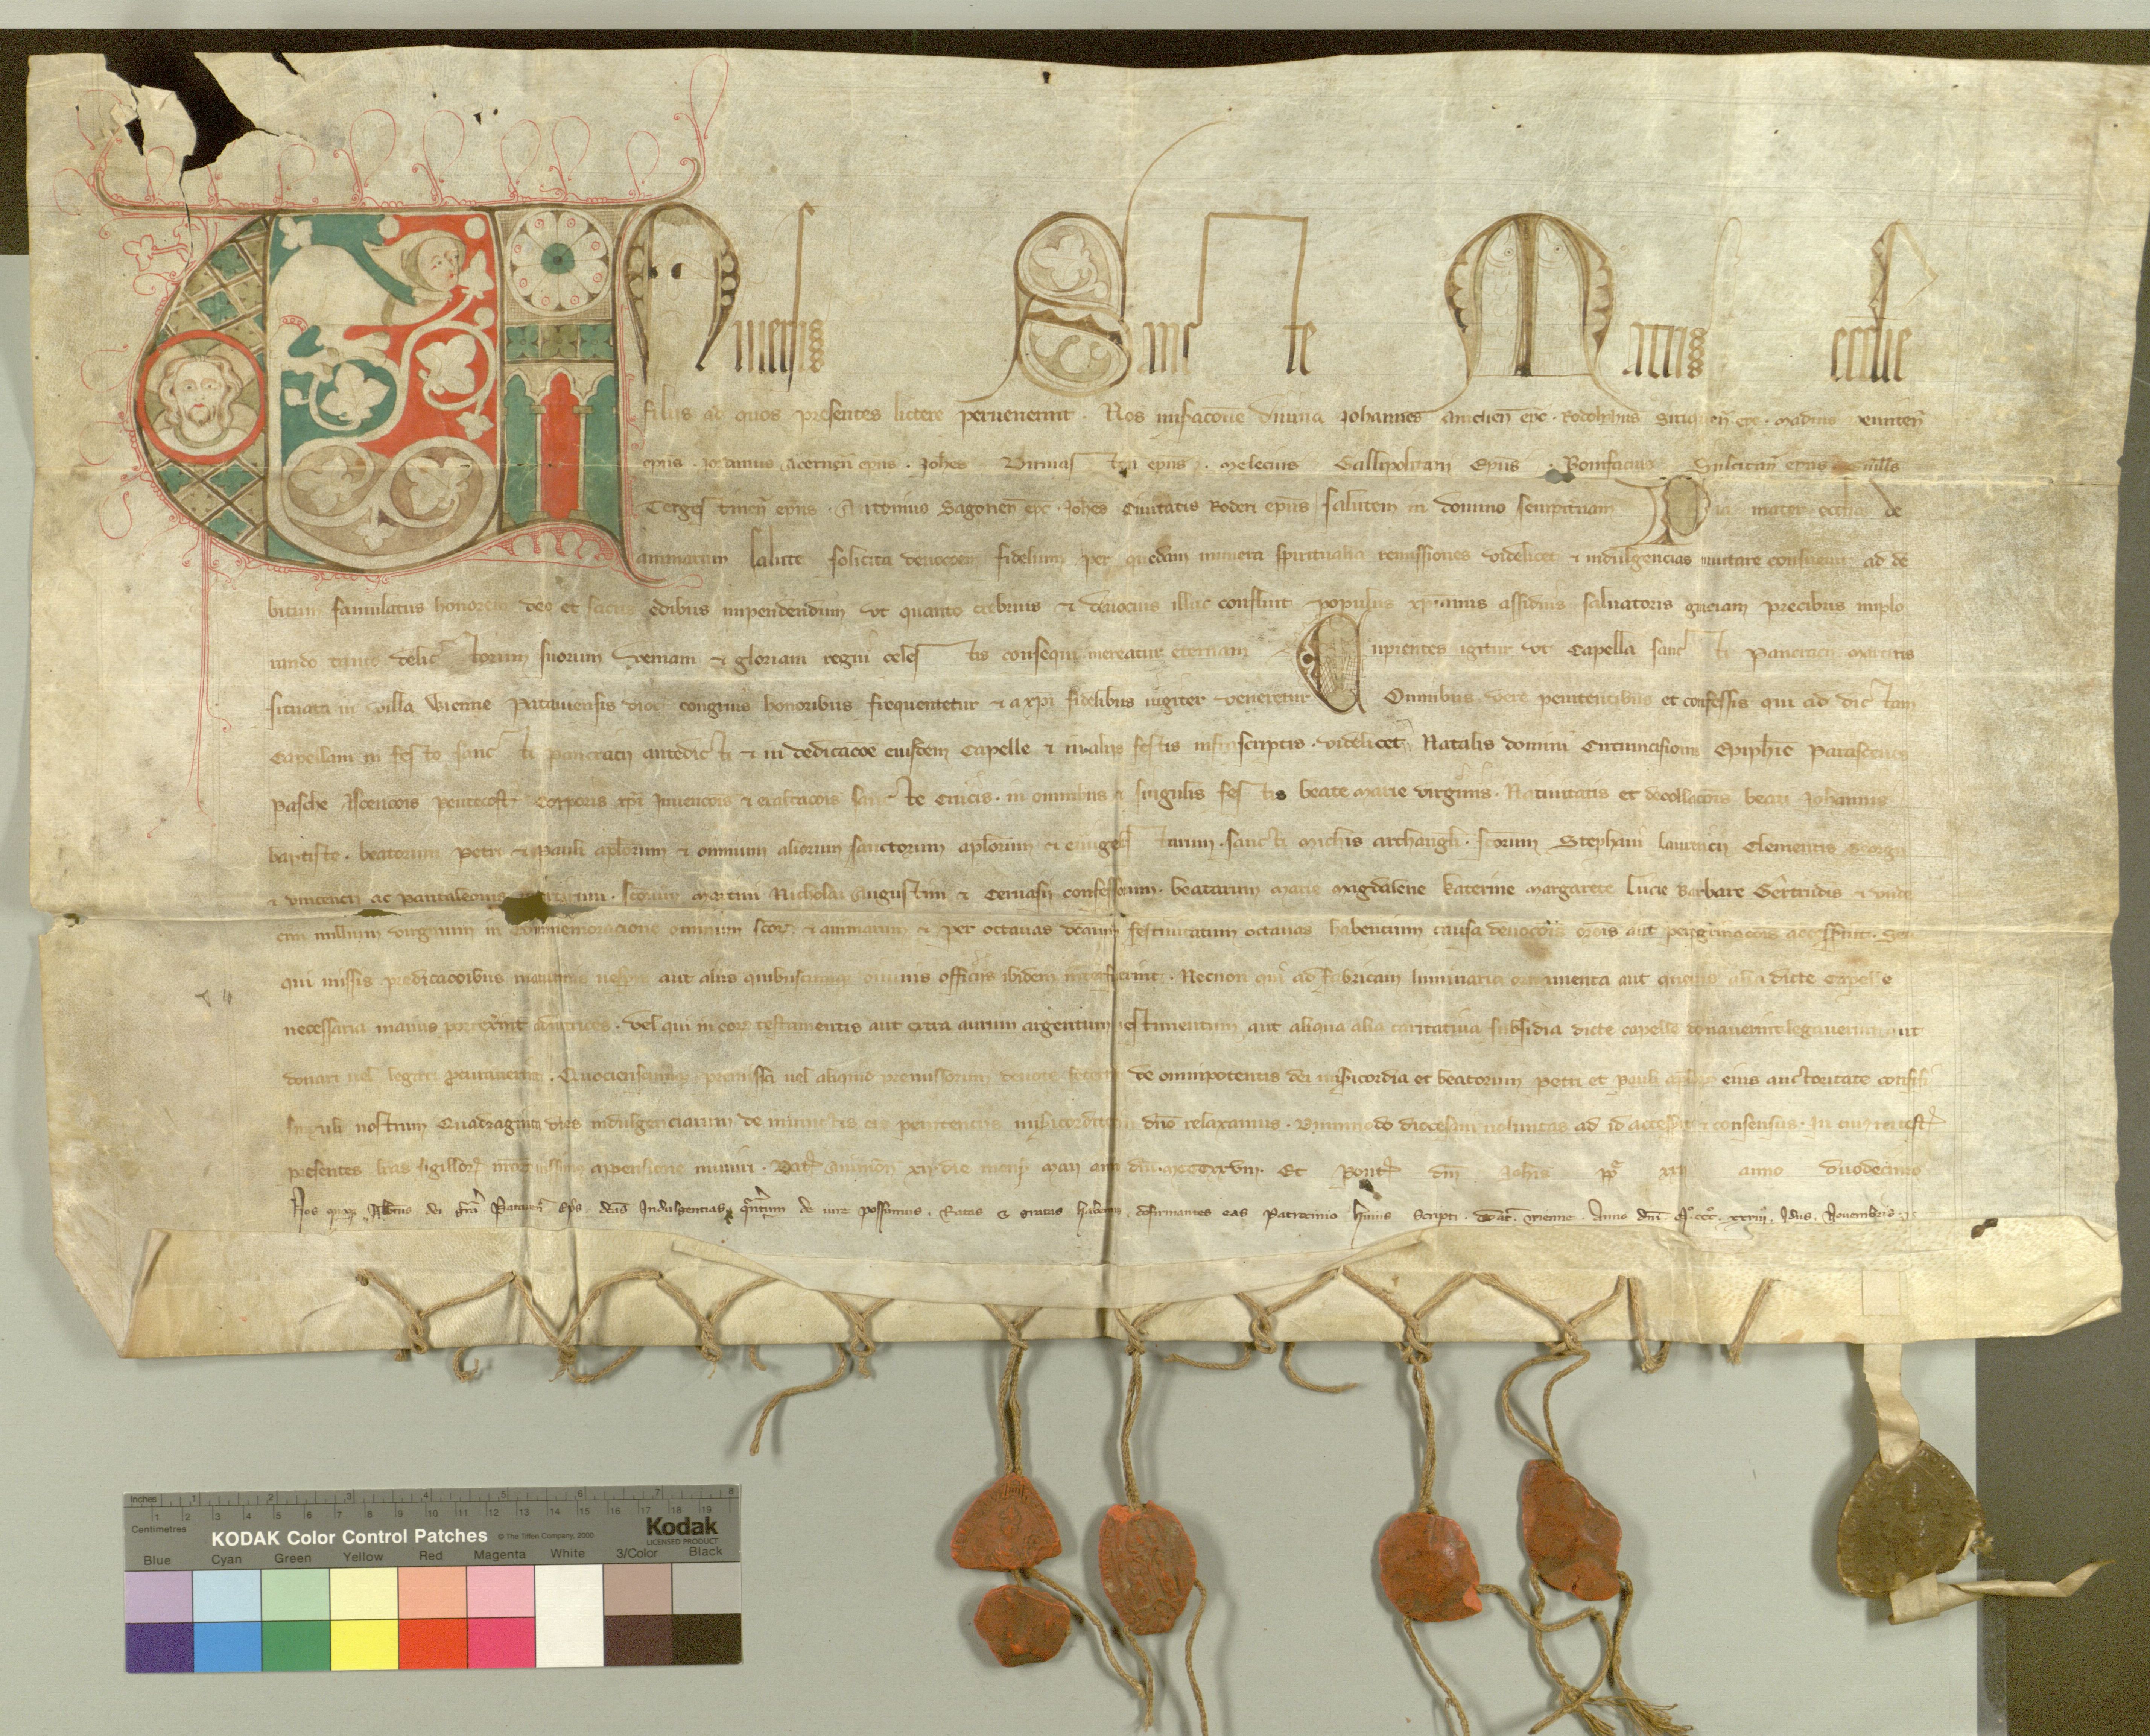 Uniuersis Sancte Matris ecclie
filiis ad quos presentes littere peruenerint . Nos miseracione diuina Johannes epc . Rodolphus epc .
epus . Jordanus Acernen epus . Johes epus . Melecius Gallipolitan Epus . Bonifacius Sulcitan epus
Terges tinen epus . Antonius Sagonen epc . Johes Ciuitatis Roderi epus salutem in domino sempiternam Pia mater ecclia de
animarum salute solicita deuocionem fidelium per quedam munera spiritualia remissiones videlicet et indulgencias inuitare consueuit ad de
bitum famulatus honorem deo et sacris edibus impendendum vt quanto crebrius et deuocius illuc confluit populus xpianus assiduis saluatoris graciam precibus implo
rando tanto delic torum suorum veniam et gloriam regni celes tis consequi mereatur eternam Cupientes igitur vt Capella sanc ti Pancracii martiris
situata in villa Wienne Patauiensis dioc congruis honoribus frequentetur et a xpi fidelibus iugiter veneretur Omnibus vere penitentibus et confessis qui ad dic tam
Capellam in fes to sanc ti pancracii antedic ti et in dedicacoe eiusdem Capelle et in aliis festis infrascriptis . videlicet Natalis domini Circumcisionis Epiphie Parasceues
Pasche Ascencois pentecost Corporis xpi Inuencois et exaltacois sanc te Crucis . in omnibus et singulis fes tis beate marie virginis . Natiuitatis et decollacois beati Johannis
baptiste . beatorum Petri et Pauli aplorum et omnium aliorum sanctorum aplorum et euuangelis tarum . sancti Michis archangli . scorum Stephani laurencii Clementis Georgii
et vincencii ac pantaleonis martirum . scorum Martini Nicholai Augustini et Geruasii confessorum . beatarum marie magdalene katerine margarete lucie Barbare Gertrudis et vnde
cim milium virginum in Commemoracione omnium scor et animarum et per octauas dictarum festiuitatum octauas habencium causa deuocois orois aut peregrinacois accesserint . Seu
qui missis predicacoibus matutinis vesperis aut aliis quibuscumque diuinis officiis ibidem interfuerint . Necnon qui ad fabricam luminaria ornamenta aut queuis alia dicte Capelle
necessaria manus porrexerint adiutrices . vel qui in eor testamentis aut extra aurum argentum vestimentum aut aliqua alia caritatiua subsidia dicte capelle donauerint legauerint aut
donari vel legari procurauerint . Quocienscumque premissa vel aliquid premissorum deuote fecerint de omnipotentis dei misericordia et beatorum petri et pauli aplor eius auctoritate confisi
singuli nostrum Quadraginta dies indulgenciarum de iniunctis eis penitenciis misericorditer in dno relaxamus . Dummodo diocesani voluntas ad id accesserit et consensus . In cuius rei test
presentes lras sigillor nror iussimus appensione muniri . Dat Auinion xii . die mens maii anno dni . mcccxxviii . Et Pont dni Johis pp xxii anno duodecimo
Nos quoque Albertus dei gra Patauien Eps . dcas Indulgentias quantum de iure possumus . Ratas et gratas habemus , confirmantes eas Patrocinio huius Scripti . dat . wienne . Anno dni . Mo . ccc . xxviii . Idus . Nouembris .
Inches 1 2 3 4 5 6 7 8
1 2 3 4 5 6 7 8 9 10 11 12 13 14 15 16 17 18 19
Centimetres
KODAK Color Control Patches © The Tiffen Company, 2000 Kodak
LICENSED PRODUCT
Blue Cyan Green Yellow Red Magenta White 3/Color Black